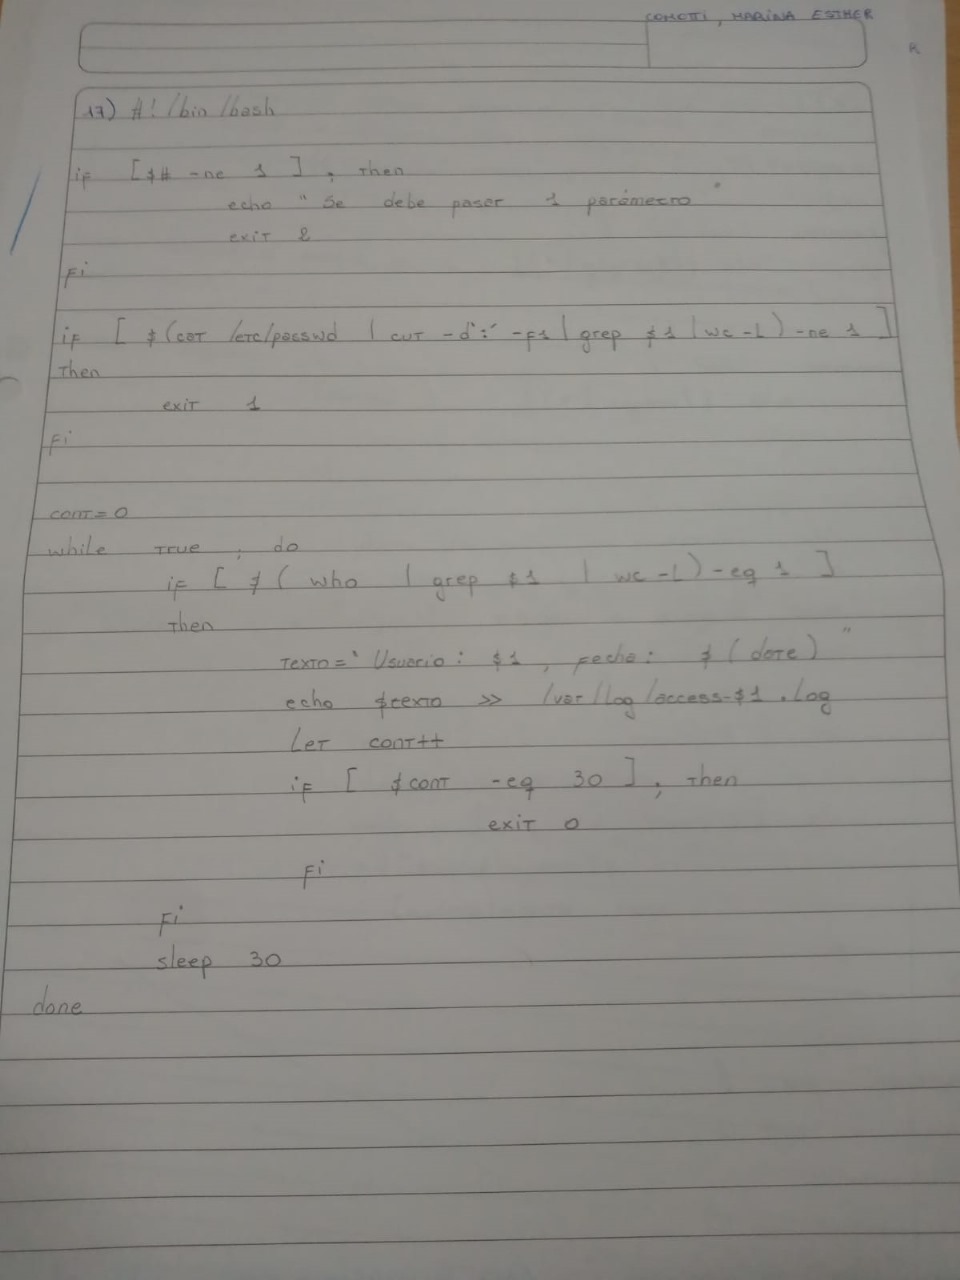 COMOTTI, MARINA ESTHER
R
17) #! /bin /bash
if [$# -ne 1 ] ; then
echo " Se debe pasar 1 parámetro "
exit 2
fi
if [ $(cat /etc/passwd | cut -d':' -f1 | grep $1 | wc -l ) -ne 1 ]
then
exit 1
fi
cont=0
while true ; do
if [ $( who | grep $1 | wc -l) -eq 1 ]
then
texto=" Usuario : $1 , fecha : $ (date) "
echo $texto >> /var/log/access-$1 .log
let cont++
if [ $cont -eq 30 ] ; then
exit 0
fi
fi
sleep 30
done